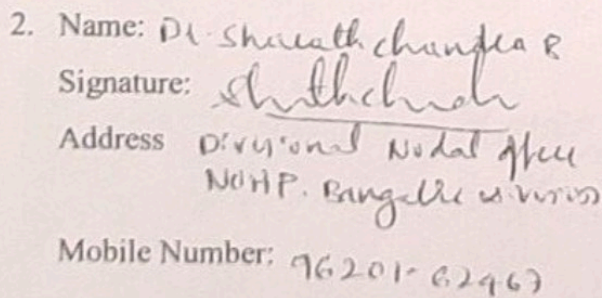 2. Name: Dr. Sharath chandra B
Signature:
Address Divisional Nodal officer
NOHP. Bangalore division
Mobile Number: 96201-62467